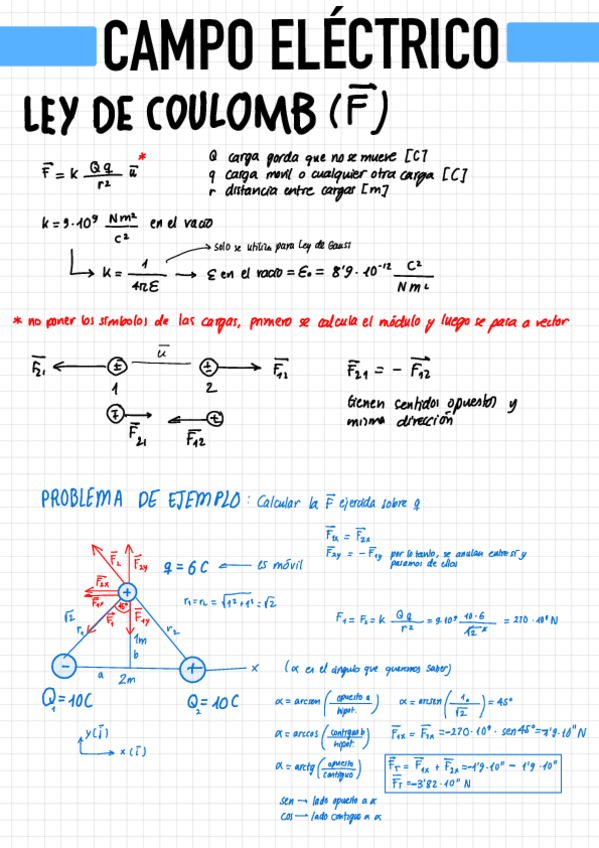 CAMPO ELÉCTRICO
LEY DE COULOMB (F⃗)
F⃗ = k Qq/r² u⃗ *
Q carga gorda que no se mueve [C]
q carga movil o cualquier otra carga [C]
r distancia entre cargas [m]
k = 9·10⁹ Nm²/C² en el vacio
solo se utiliza para Ley de Gauss
k = 1/4πε → ε en el vacio = ε₀ = 8'9·10⁻¹² C²/Nm²
* no poner los símbolos de las cargas, primero se calcula el módulo y luego se pasa a vector
F⃗₂₁ ± u⃗ ± F⃗₁₂
1 2
F⃗₂₁ = - F⃗₁₂
tienen sentidos opuestos y
misma dirección
F⃗₂₁ F⃗₁₂
PROBLEMA DE EJEMPLO: Calcular la F⃗ ejercida sobre q
F⃗₂y = - F⃗₁y por lo tanto, se anulan entre sí y
pasamos de ellas
F⃗₂ F⃗₂y
q = 6C ← es móvil
F⃗₂x
F⃗₁x
45° F⃗₁ F⃗₁y
r₁ = r₂ = √1²+1² = √2
F₁ = F₂ = k Qq/r² = 9·10⁹ 10·6/√2² = 270·10⁹ N
√2 r₁ r₂
1m
b
- + x
a
2m
(α es el ángulo que queremos saber)
Q₁ = 10C Q₂ = 10C
α = arcsen (opuesto a/hipot.) α = arcsen (1/√2) = 45°
y (j⃗)
x (i⃗)
α = arccos (contiguo b/hipot.) F⃗₁x = F⃗₂x = -270·10⁹ · sen45° = -1'9·10¹¹ N
α = arctg (opuesto/contiguo)
F⃗T = F⃗₁x + F⃗₂x = -1'9·10¹¹ - 1'9·10¹¹
F⃗T = -3'82·10¹¹ N
sen → lado opuesto a α
cos → lado contiguo a α